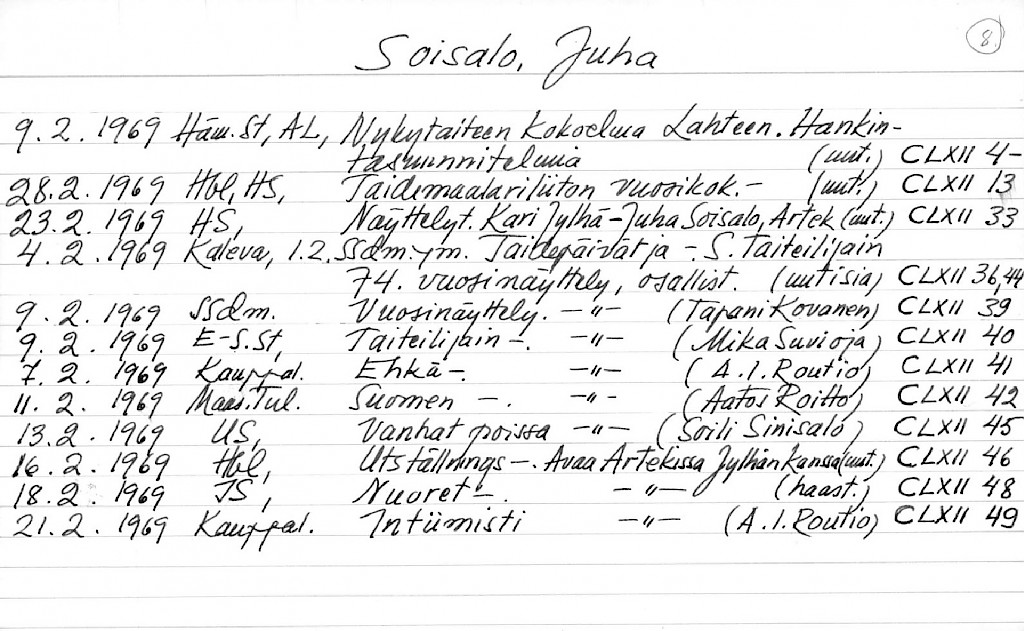 8.
Soisalo, Juha
9.2.1969 Häm.St, AL, Nykytaiteen Kokoelma Lahteen. Hankin-
tasuunnitelmia (uut.) CLXII 4-
28.2.1969 Hbl, HS, Taidemaalariliiton vuosikok.- (uut.) CLXII 13
23.2.1969 HS, Näyttelyt. Kari Jylhä-Juha Soisalo, Artek (uut.) CLXII 33
4.2.1969 Kaleva, 1.2, SSdm. ym. Taidepäivät ja -. S. Taiteilijain
74. vuosinäyttely, osallist. (uutisia) CLXII 36,44
9.2.1969 SSdm. Vuosinäyttely. -"- (Tapani Kovanen) CLXII 39
9.2.1969 E-S.St, Taiteilijain -. -"- (Mika Suvioja) CLXII 40
7.2.1969 Kauppal. Ehkä -. -"- (A.I. Routio) CLXII 41
11.2.1969 Maas.Tul. Suomen -. -"- (Aatos Roitto) CLXII 42
13.2.1969 US, Vanhat poissa -"- (Soili Sinisalo) CLXII 45
16.2.1969 Hbl, Utställnings -. Avaa Artekissa Jylhän kanssa (uut.) CLXII 46
18.2.1969 TS, Nuoret -. -"- (haast.) CLXII 48
21.2.1969 Kauppal. Intiimisti -"- (A.I. Routio) CLXII 49